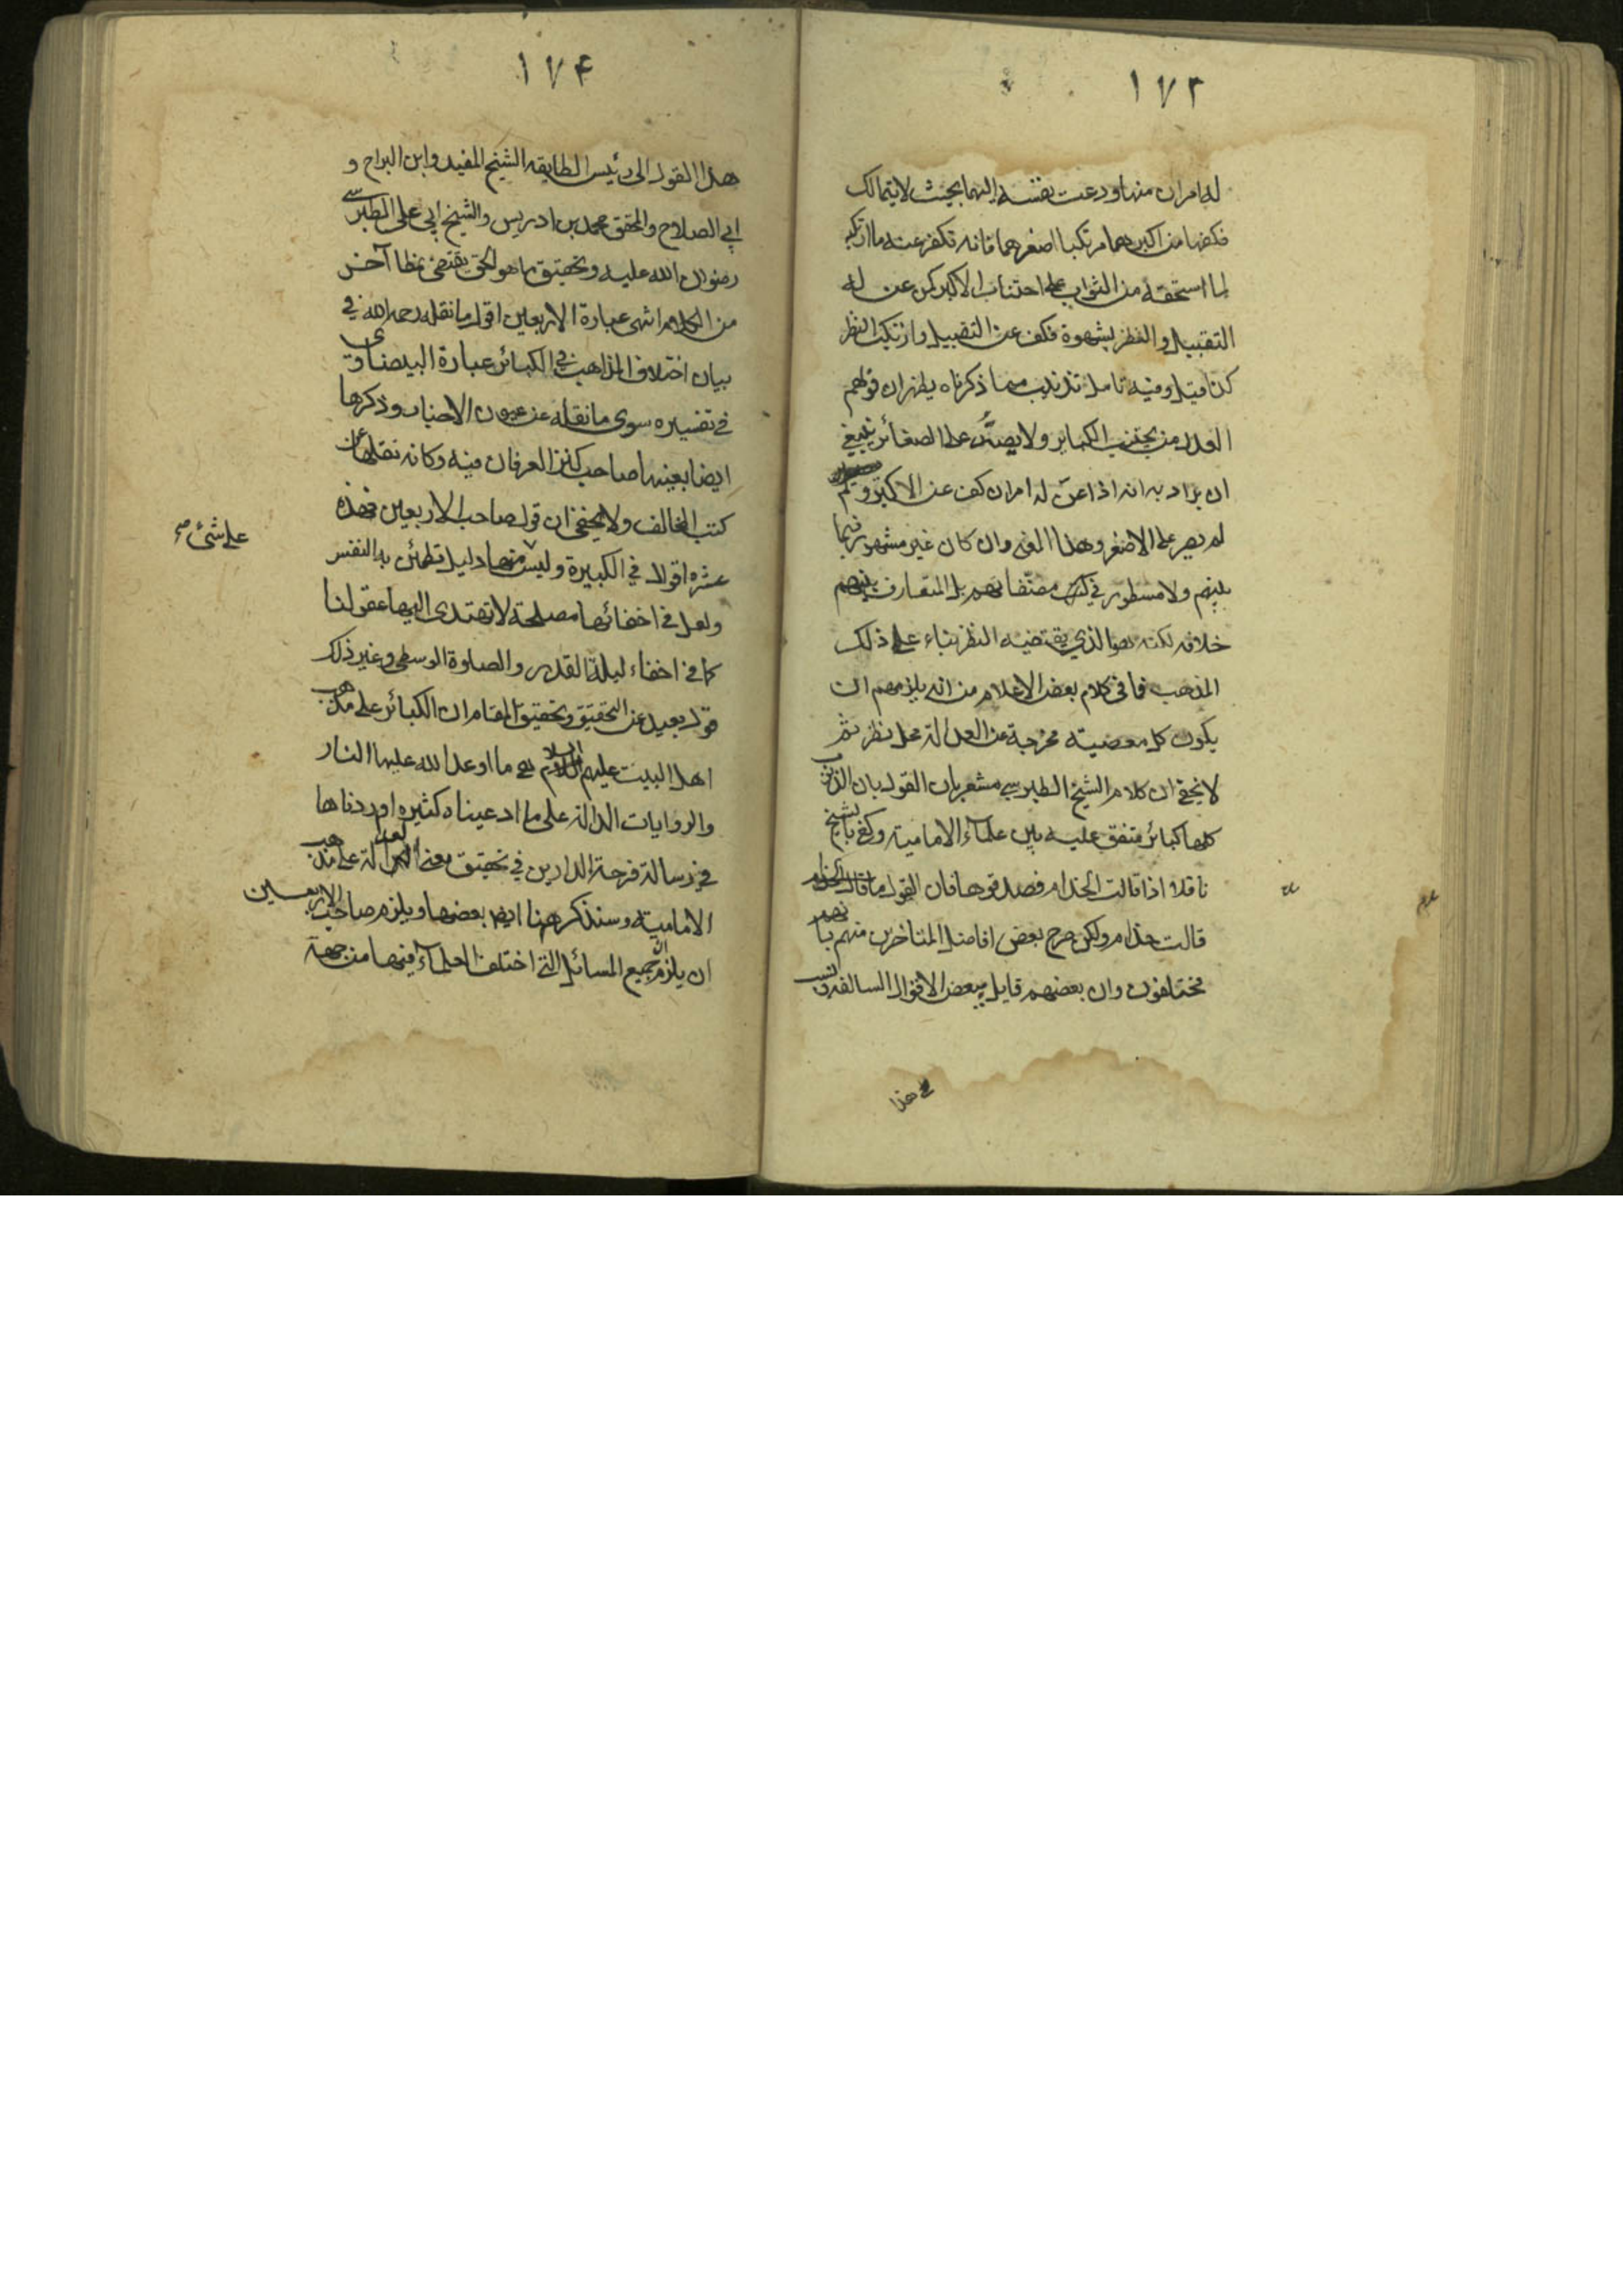 ١٧٣
له امران منها ودعت نفسه اليهما بحيث لا يتمالك
فكفها من اكبرهما مرتكبا اصغرهما فانه تكفر عنه ما ارتكبه
لما استحقه من الثواب على اجتناب الاكبر كمن عن له
التقبيل والنظر بشهوة فكف عن التقبيل وارتكب النظر
كذا قيل وفيه تامل تذنيب مما ذكرناه يظهر ان قولهم
العدل من يجتنب الكبائر ولا يصر على الصغائر ينبغي
ان يراد به انه اذا عن له امران كف عن الاكبر و
لم يصر على الاصغر وهذا المعنى وان كان غير مشهور فيما
بينهم ولا مسطور في كتب مصنفاتهم بل المتعارف بينهم
خلافه لكنه هو الذي يقتضيه النظر بناء على ذلك
المذهب فما في كلام بعض الاعلام من انه يلزمهم ان
يكون كل معصية مخرجة عن العدالة محل نظر ثم
لا يخفى ان كلام الشيخ الطبرسي مشعر بان القول بان الذنوب
كلها كبائر متفق عليه بين علماء الامامية وكفى بالشيخ
ناقلا اذا قالت الحذام فصدقوها فان القول ما قالت الحذام
قالت حذام ولكن صرح بعض افاضل المتاخرين منهم بانهم
مختلفون وان بعضهم قايل ببعض الاقوال السالفة ونسب
هذا
١٧٤
هذا القول الى رئيس الطايفه الشيخ المفيد وابن البراج و
ابي الصلاح والمحقق محمد بن ادريس والشيخ ابي علي الطبرسي
رضوان الله عليه وتحقيق ما هو الحق يقتضي نمطا آخر
من الكلام انتهى عبارة الاربعين اقول ما نقله رحمه الله في
بيان اختلاف المذاهب في الكبائر عبارة البيضاوى
في تفسيره سوى ما نقله عن عيون الاخبار وذكرها
ايضا بعينها صاحب كنز العرفان فيه وكانه نقلها عن
كتب المخالف ولا يخفى ان قول صاحب الاربعين فهذه
عشرة اقوال في الكبيرة وليس منها دليل تطمئن به النفس
على شئ صح
ولعل في اخفائها مصلحة لا تهتدى اليها عقولنا
كما في اخفاء ليلة القدر والصلوة الوسطى وغير ذلك
قول بعيد عن التحقيق وتحقيق المقام ان الكبائر على مذهب
اهل البيت عليهم السلام هي ما اوعد الله عليها النار
والروايات الدالة على ما ادعيناه كثيرة اوردناها
في رسالة فرحة الدارين في تحقيق معنى العدالة على مذهب
الامامية وسنذكر هنا ايضا بعضها ويلزم صاحب الاربعين
ان يلزم جميع المسائل التي اختلف العلماء فيها من جهة